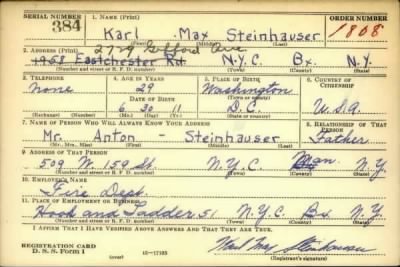 SERIAL NUMBER 1. NAME (Print) ORDER NUMBER
384 Karl Max Steinhauser 1808
(First) (Middle) (Last)
2. ADDRESS (Print) 2729 Gifford Ave
1958 Eastchester Rd N.Y.C Bx. N.Y.
(Number and street or R. F. D. number) (Town) (County) (State)
3. TELEPHONE 4. AGE IN YEARS 5. PLACE OF BIRTH 6. COUNTRY OF CITIZENSHIP
none 29 Washington
DATE OF BIRTH (Town or county)
6 30 11 D.C. U.S.A
(Exchange) (Number) (Mo.) (Day) (Yr.) (State or country)
7. NAME OF PERSON WHO WILL ALWAYS KNOW YOUR ADDRESS 8. RELATIONSHIP OF THAT PERSON
Mr. Anton - Steinhauser Father
(Mr., Mrs., Miss) (First) (Middle) (Last)
9. ADDRESS OF THAT PERSON
509 W. 159 St. N.Y.C Man. N.Y.
(Number and street or R. F. D. number) (Town) (County) (State)
10. EMPLOYER'S NAME
Fire Dept.
11. PLACE OF EMPLOYMENT OR BUSINESS
Hook and Ladder 51 N.Y.C. Bx. N.Y.
(Number and street or R. F. D. number) (Town) (County) (State)
I AFFIRM THAT I HAVE VERIFIED ABOVE ANSWERS AND THAT THEY ARE TRUE.
REGISTRATION CARD
D. S. S. Form 1 16-17105 Karl Max Steinhauser